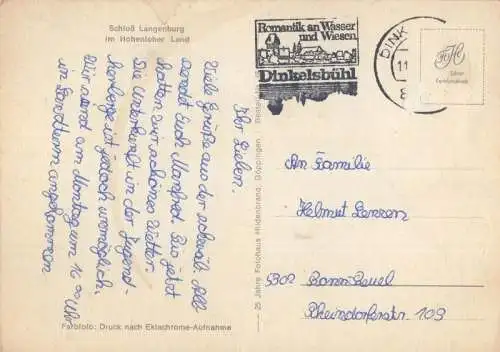 Schloß Langenburg
im Hohenloher Land
Ihr Lieben.
Viele Grüße aus der schwäb. Alb
sendet Euch Manfred. Bis jetzt
hatten wir schönes Wetter.
Die Unterkunft in der Jugend-
herberge ist jedoch unmöglich.
Wir sind am Montag um 16 00 Uhr
in angekommen
Farbfoto: Druck nach Ektachrome-Aufnahme
25 Jahre Fotohaus Hildenbrand, Göppingen.
Romantik an Wasser
und Wiesen.
Dinkelsbühl
DINK
11
8
An Familie
Helmut Lenzen
5302 Bonn Beuel
Rheindorferstr. 109